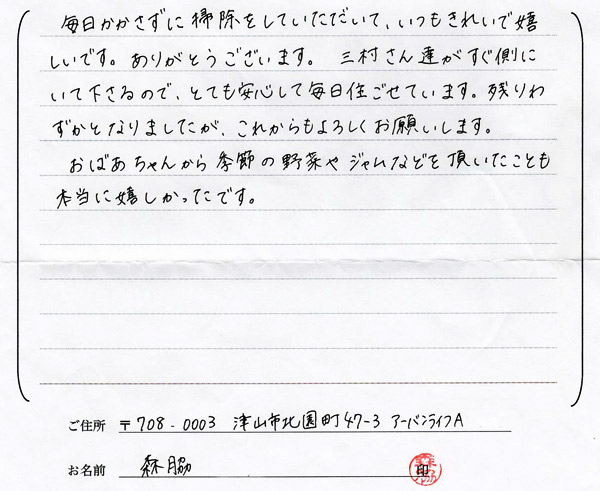 毎日かかさずに掃除をしていただいて、いつもきれいで嬉
しいです。ありがとうございます。 三村さん達がすぐ側に
いて下さるので、とても安心して毎日住ごせています。残りわ
ずかとなりましたが、これからもよろしくお願いします。
おばあちゃんから季節の野菜やジャムなどを頂いたことも
本当に嬉しかったです。
ご住所 〒708-0003 津山市北園町47-3 アーバンライフA
お名前 森脇 印